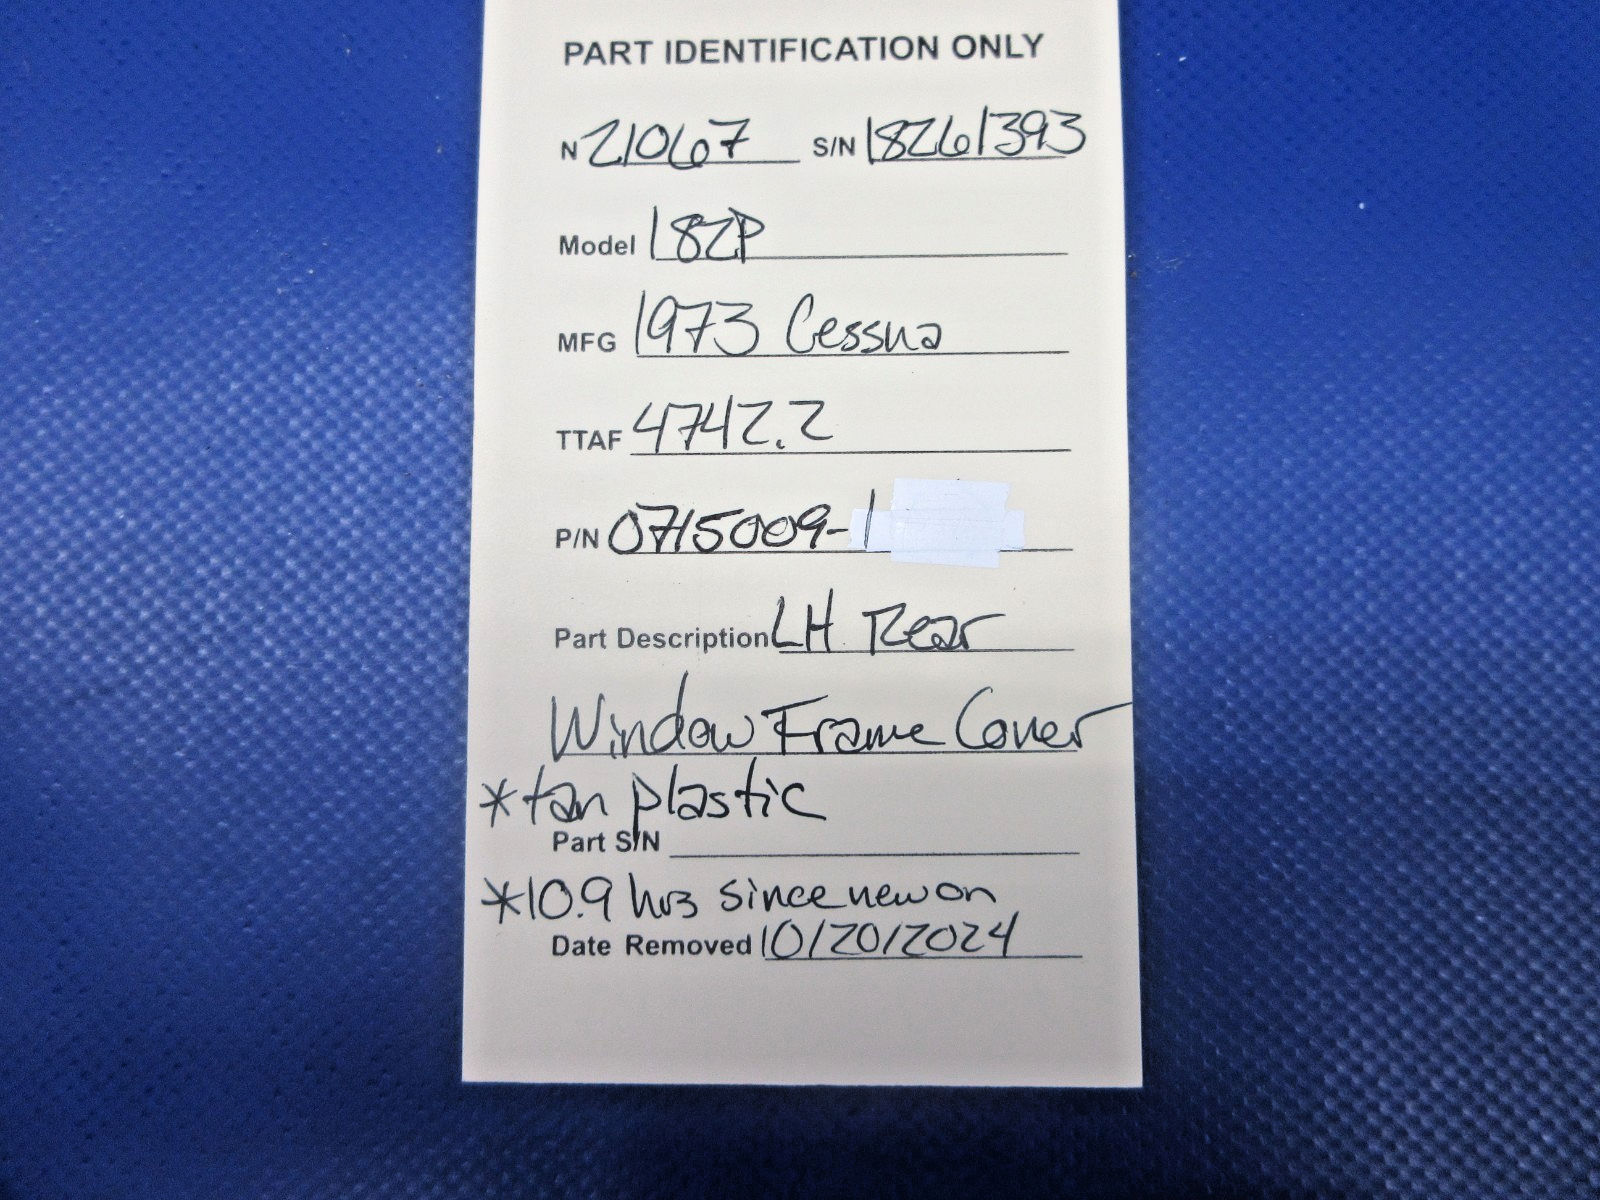 PART IDENTIFICATION ONLY
N 21067 S/N 18261393
Model 182P
MFG 1973 Cessna
TTAF 4742.2
P/N 0715009-1
Part Description LH Rear
Window Frame Cover
*tan plastic
Part S/N
*10.9 hrs since new on
Date Removed 10/20/2024